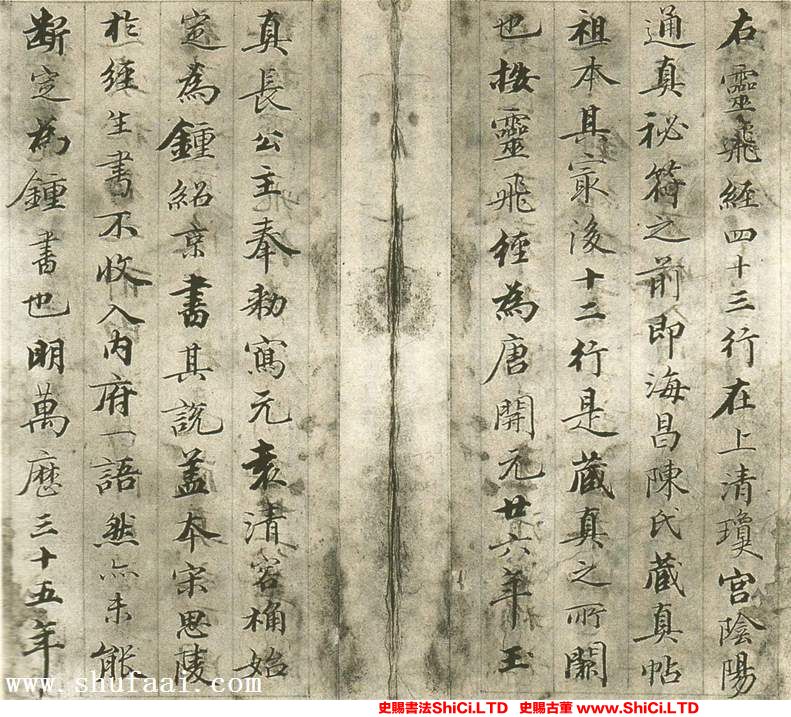 右靈飛經四十三行在上清瓊宮陰陽
通真祕符之前即海昌陳氏藏真帖
祖本其冣後十二行是藏真之所闕
也按靈飛經為唐開元廿六年玉
真長公主奉敕寫元袁清容桷始
定為鍾紹京書其說蓋本宋思陵
於經生書不收入內府一語然亦未能
斷定為鍾書也明萬曆三十五年
www.shufaai.com
史賜書法ShiCi.LTD 史賜古董 www.ShiCi.LTD